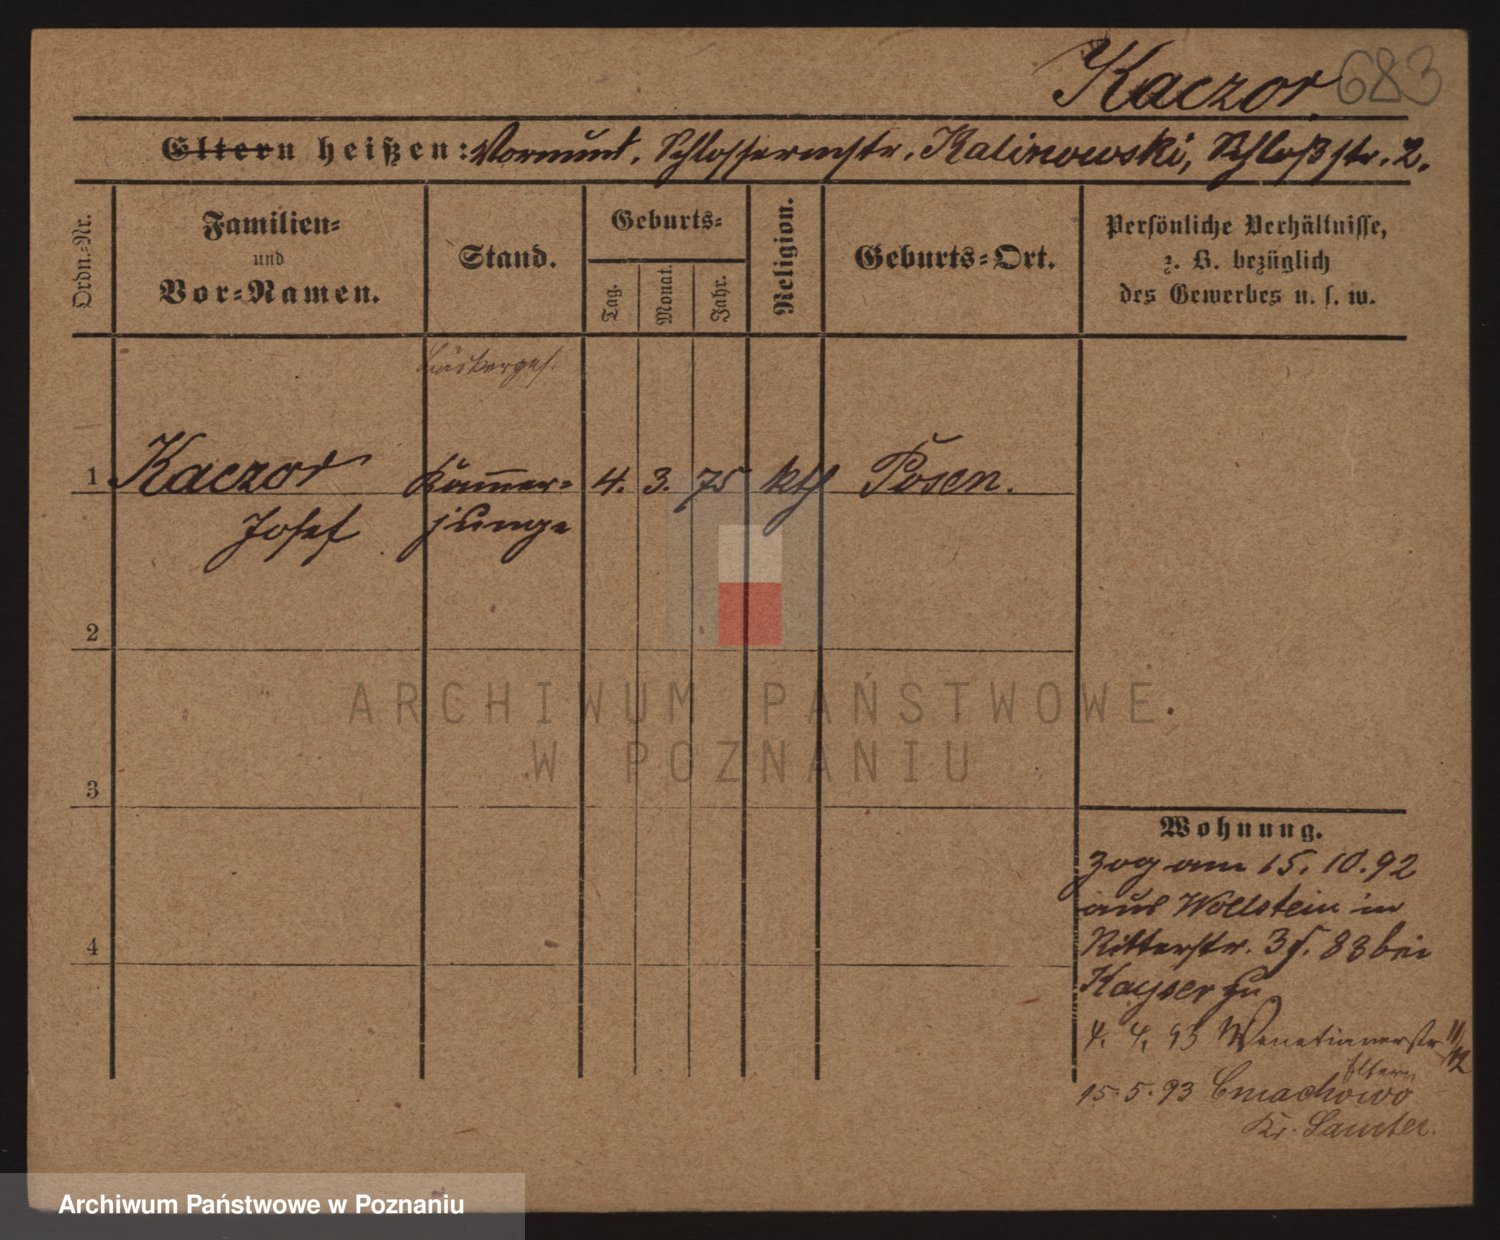 Kaczor 683
Eltern heißen: Vormund, Schlossermstr. Kalinowski, Schloßstr. 2.
Ordn.-Nr.
Familien-
und
Vor-Namen.
Stand.
Geburts-
Tag.
Monat.
Jahr.
Religion.
Geburts-Ort.
Persönliche Verhältnisse,
z. B. bezüglich
des Gewerbes u. s. w.
Bäckerges.
1 Kaczor
Josef
junge
4. 3. 75 kth Posen.
2
3
4
ARCHIWUM PAŃSTWOWE
W POZNANIU
Wohnung.
zog am 15. 10. 92
aus Wollstein in
Ritterstr. 38 bei
Kayser zu
4. 4. 93 Venetianerstr 11/12
Eltern
15. 5. 93 Cmachowo
Kr. Samter.
Archiwum Państwowe w Poznaniu